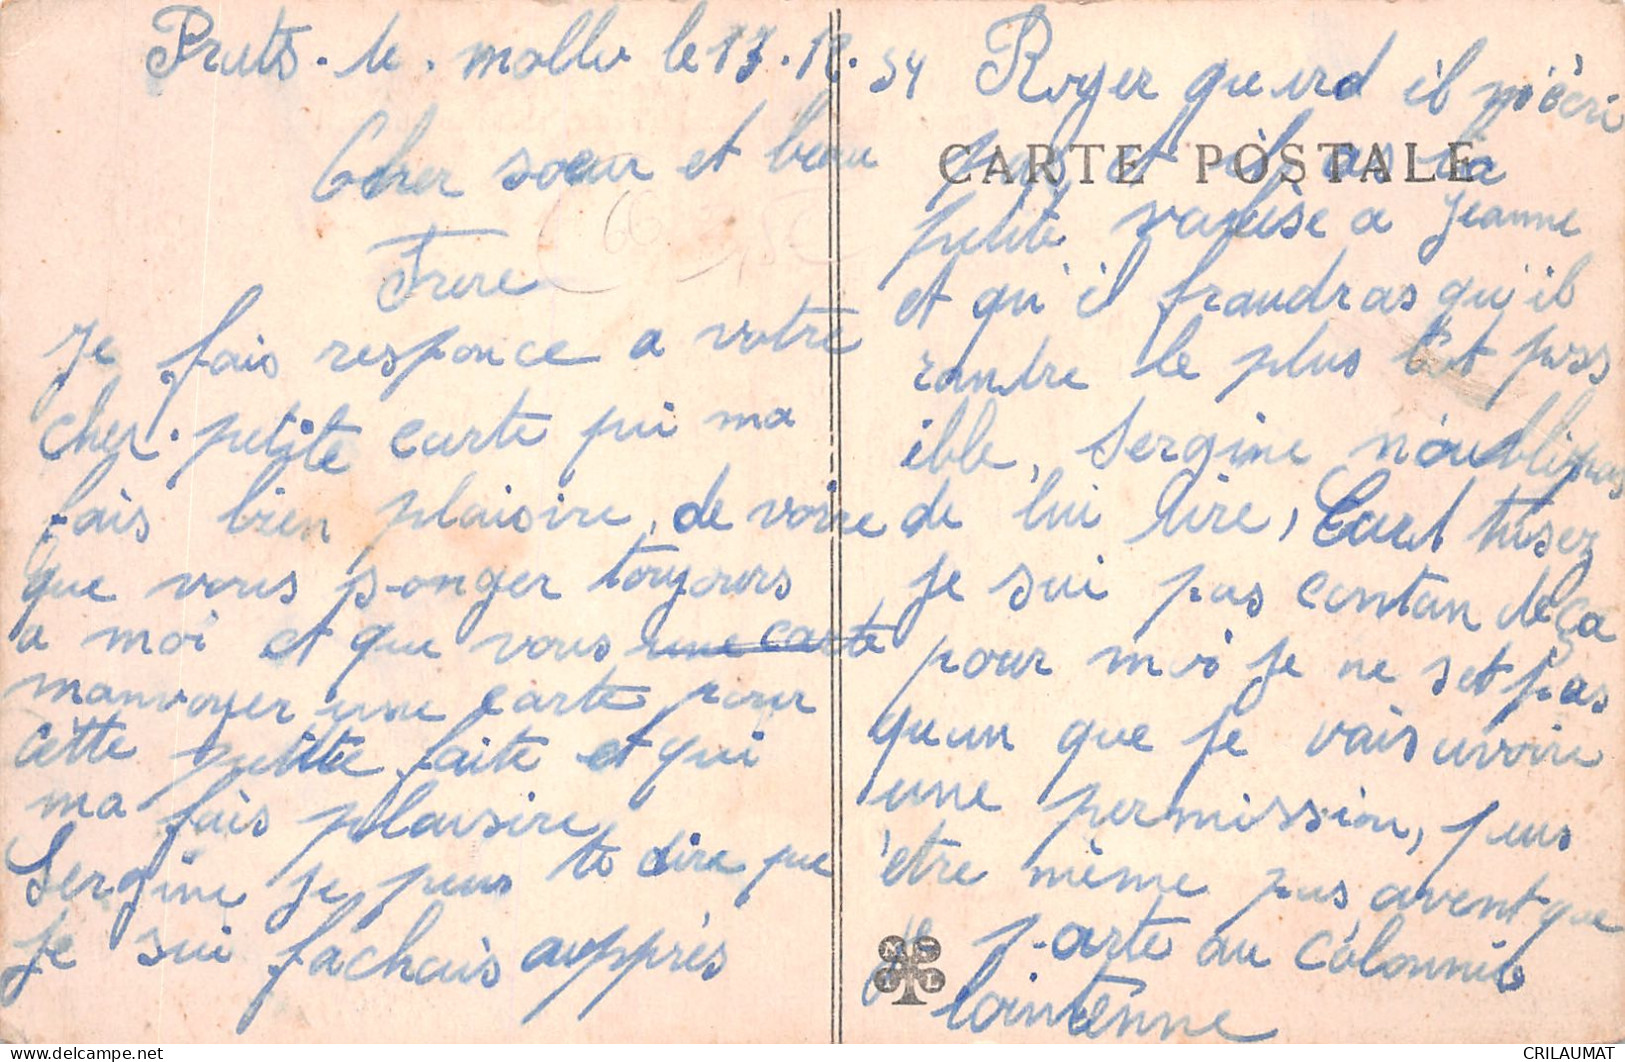 Prats. de. mollo le 13.12.54
Cher soeur et beau
Frere
Je fais responce a votre
cher. petite carte qui ma
fais bien plaisire, de voire
que vous songer toujours
a moi et que vous une carte
manvoyer une carte pour
cette petite faite et qui
ma fais plaisire
Sergine je peus te dire que
je sui fachais auppres
Roger quand il m'écri
pas et il as la
CARTE POSTALE
petite valise a Jeanne
et qu'il fraudras qu'il
randre le plus tôt poss
ible, Sergine n'oublipas
de lui dire,
je sui pas contan de ca
pour moi je ne set pas
quan que je vais avoire
une permission, peus
être même pas avent que
je parte au colonnie
lointenne
CRILAUMAT